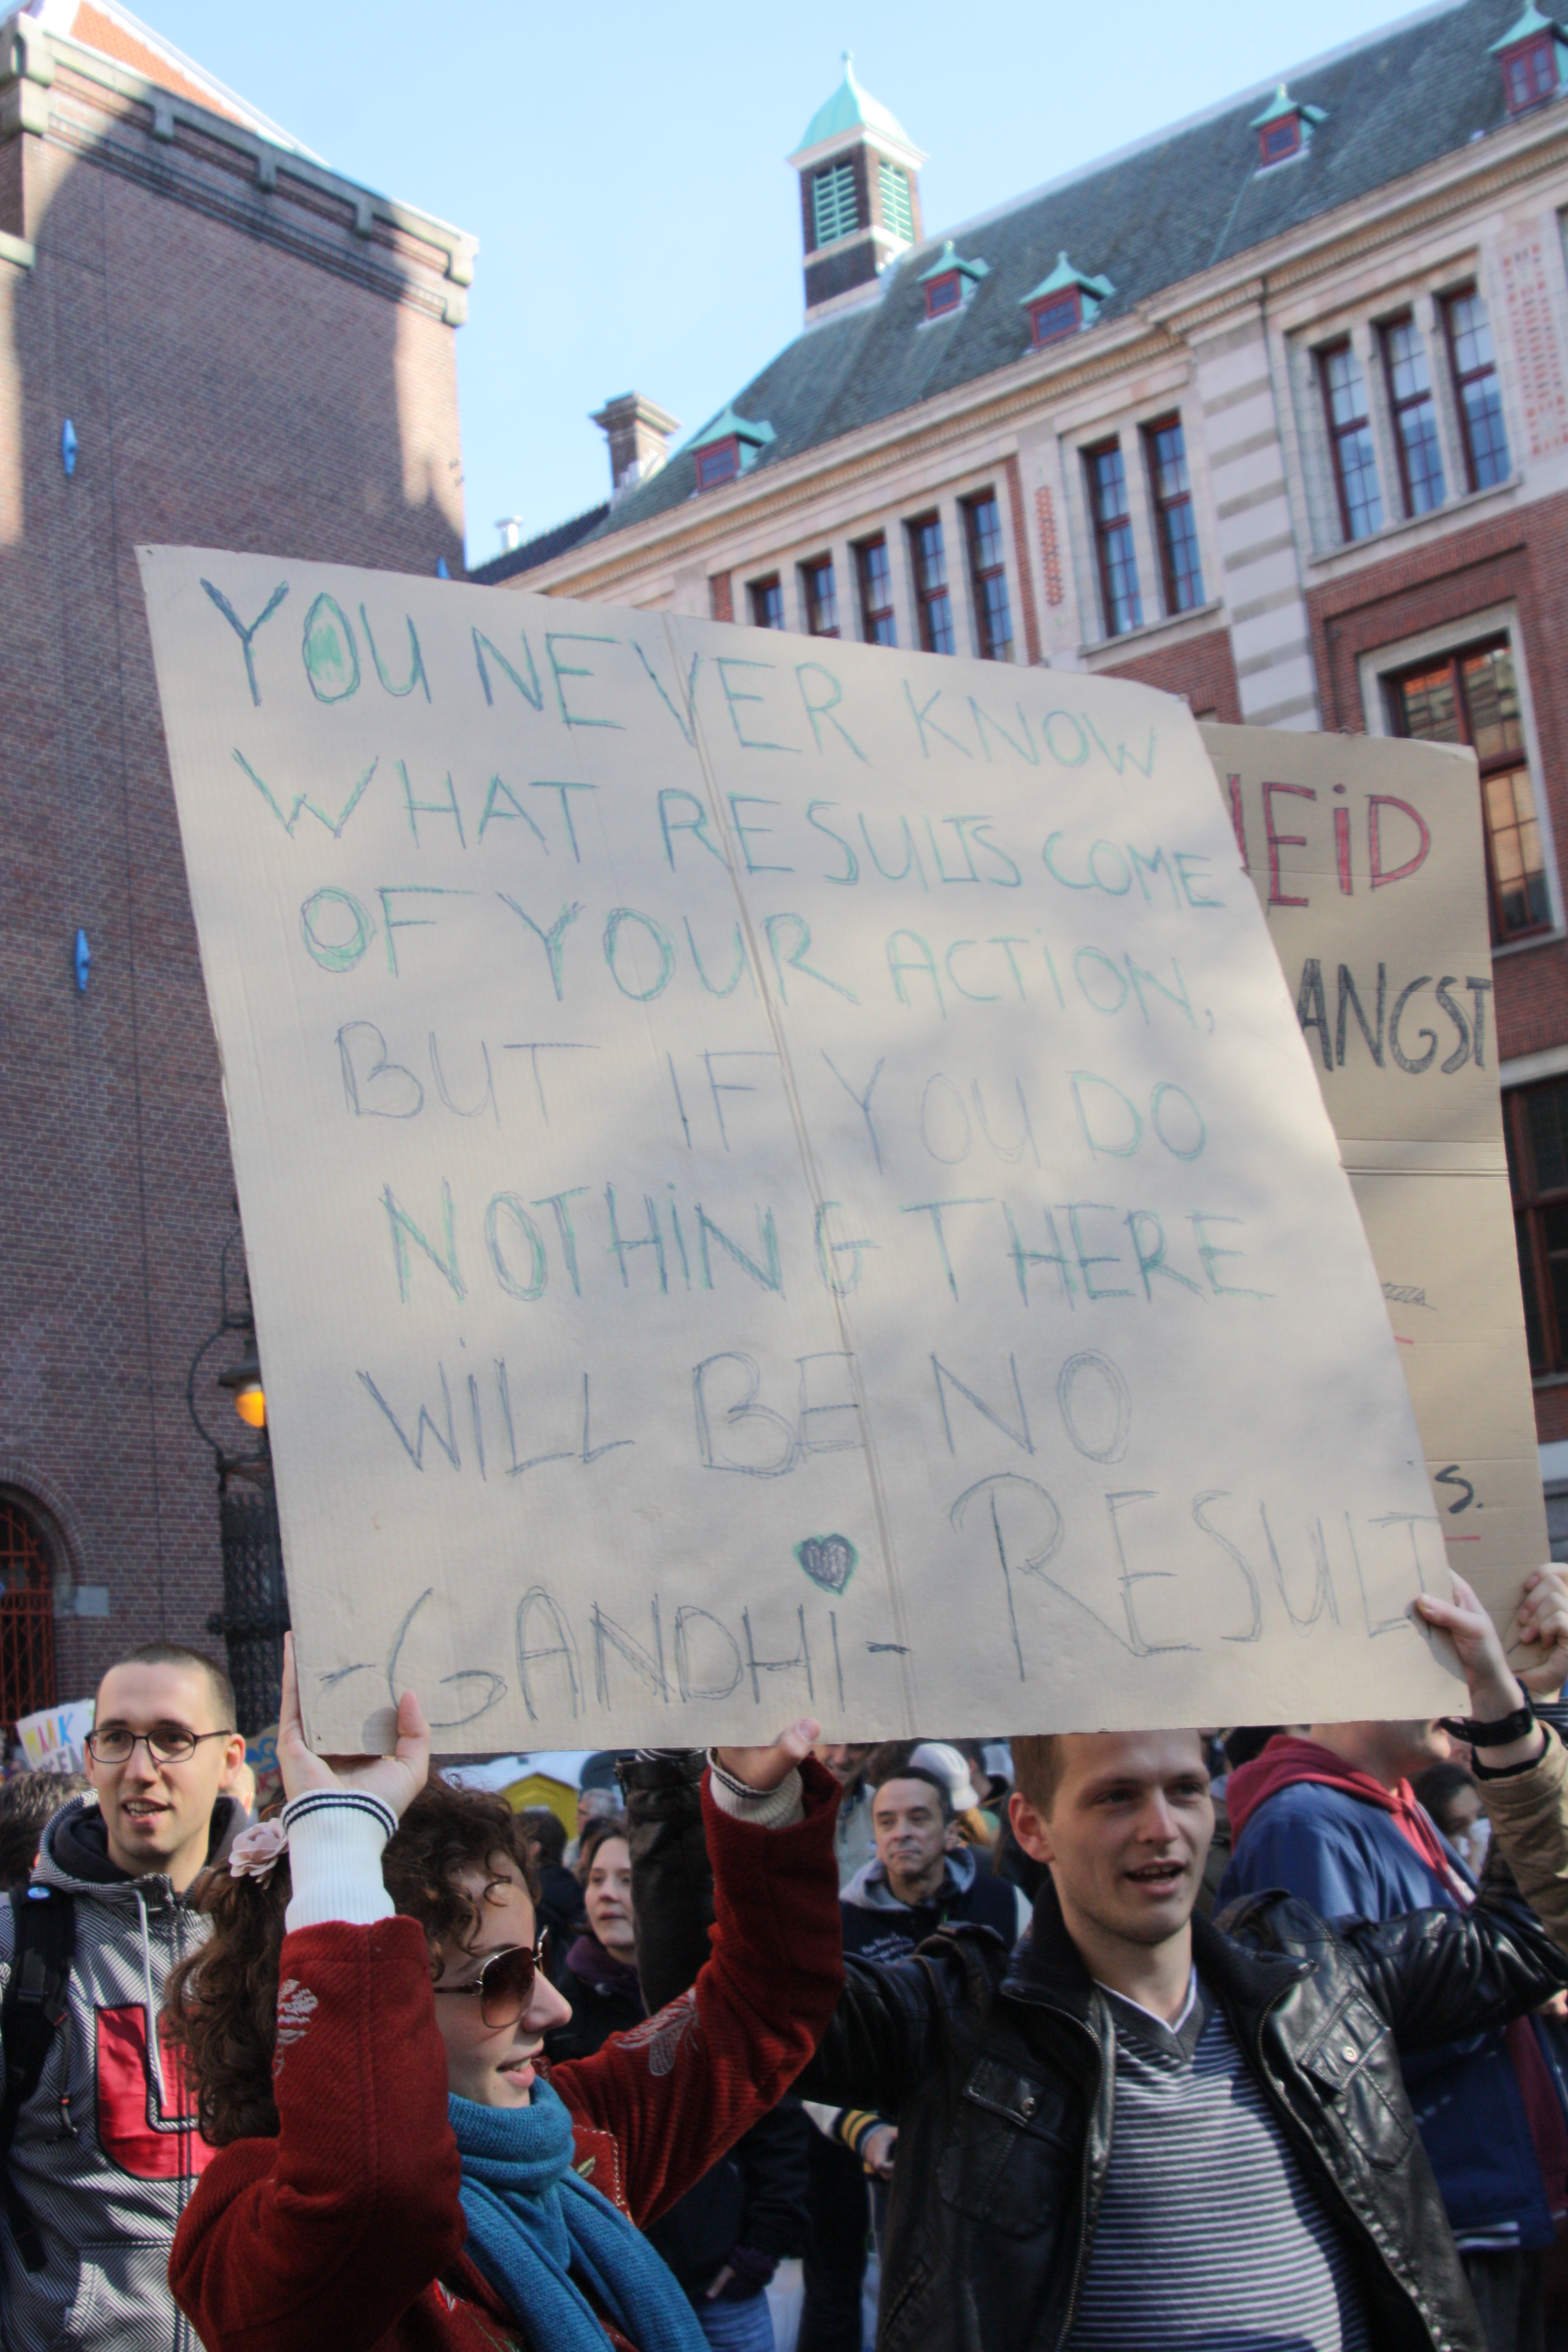 YOU NEVER KNOW
WHAT RESULTS COME
OF YOUR ACTION,
BUT IF YOU DO
NOTHING THERE
WiLL BE NO
RESULT
-GANDHi-
EiD
ANGST
S.